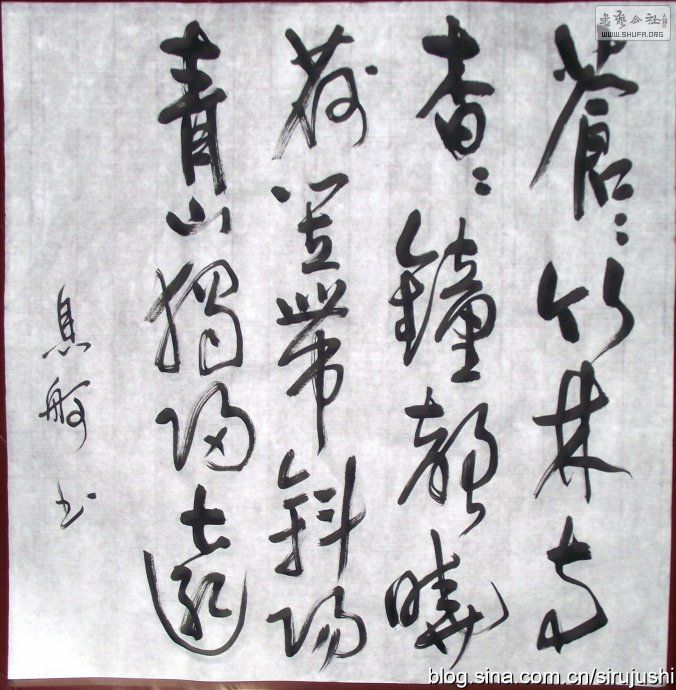 蒼〻竹林寺
杳〻鐘聲曉
荷笠帶斜陽
青山獨歸遠
息舸书
书艺公社
WWW.SHUFA.ORG
blog.sina.com.cn/sirujushi